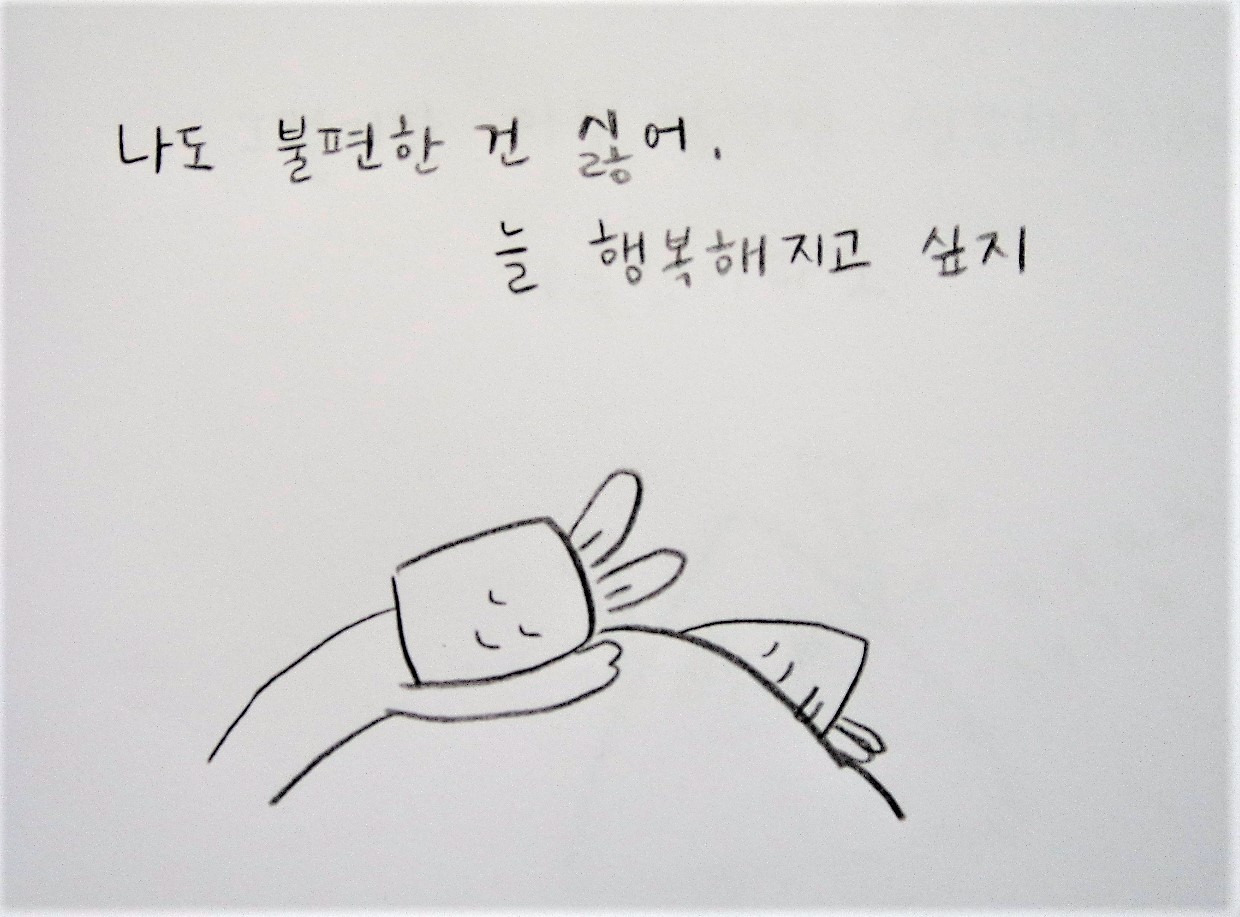 나도 불편한 건 싫어.
늘 행복해지고 싶지